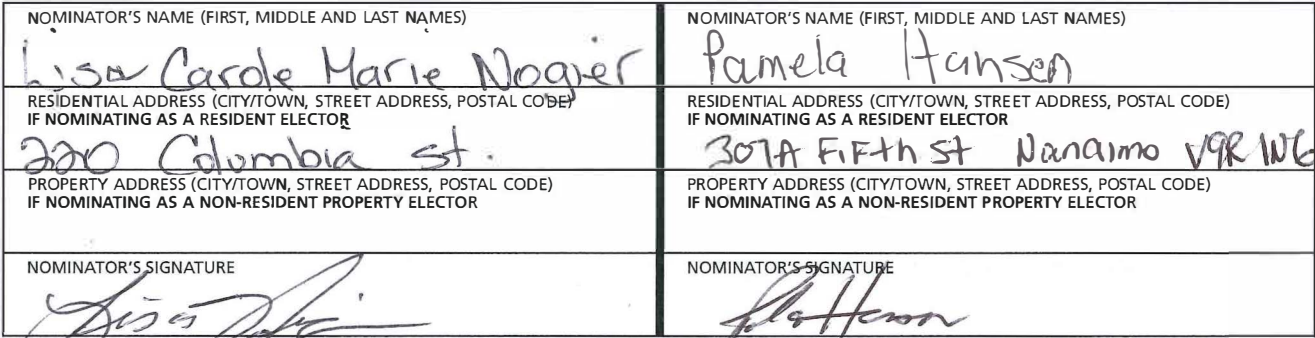 NOMINATOR'S NAME (FIRST, MIDDLE AND LAST NAMES)
Lisa Carole Marie Nogier
RESIDENTIAL ADDRESS (CITY/TOWN, STREET ADDRESS, POSTAL CODE)
IF NOMINATING AS A RESIDENT ELECTOR
220 Columbia St.
PROPERTY ADDRESS (CITY/TOWN, STREET ADDRESS, POSTAL CODE)
IF NOMINATING AS A NON-RESIDENT PROPERTY ELECTOR
NOMINATOR'S SIGNATURE
NOMINATOR'S NAME (FIRST, MIDDLE AND LAST NAMES)
Pamela Hansen
RESIDENTIAL ADDRESS (CITY/TOWN, STREET ADDRESS, POSTAL CODE)
IF NOMINATING AS A RESIDENT ELECTOR
307A FiFth St Nanaimo V9R 1N6
PROPERTY ADDRESS (CITY/TOWN, STREET ADDRESS, POSTAL CODE)
IF NOMINATING AS A NON-RESIDENT PROPERTY ELECTOR
NOMINATOR'S SIGNATURE